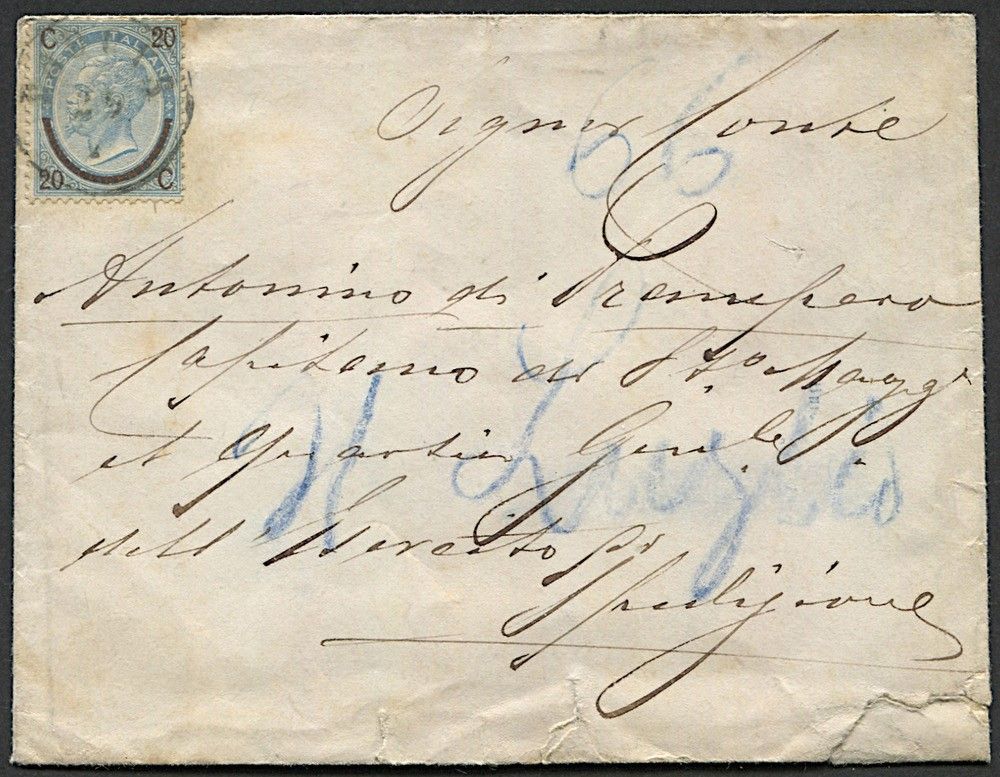 C 20
POSTE ITALIANE
20 C
66
Signor Conte
Antonino di Prampero
Capitano di Sto Maggr
al Quartier Genle
dell'Esercito di
Spedizione
Luglio